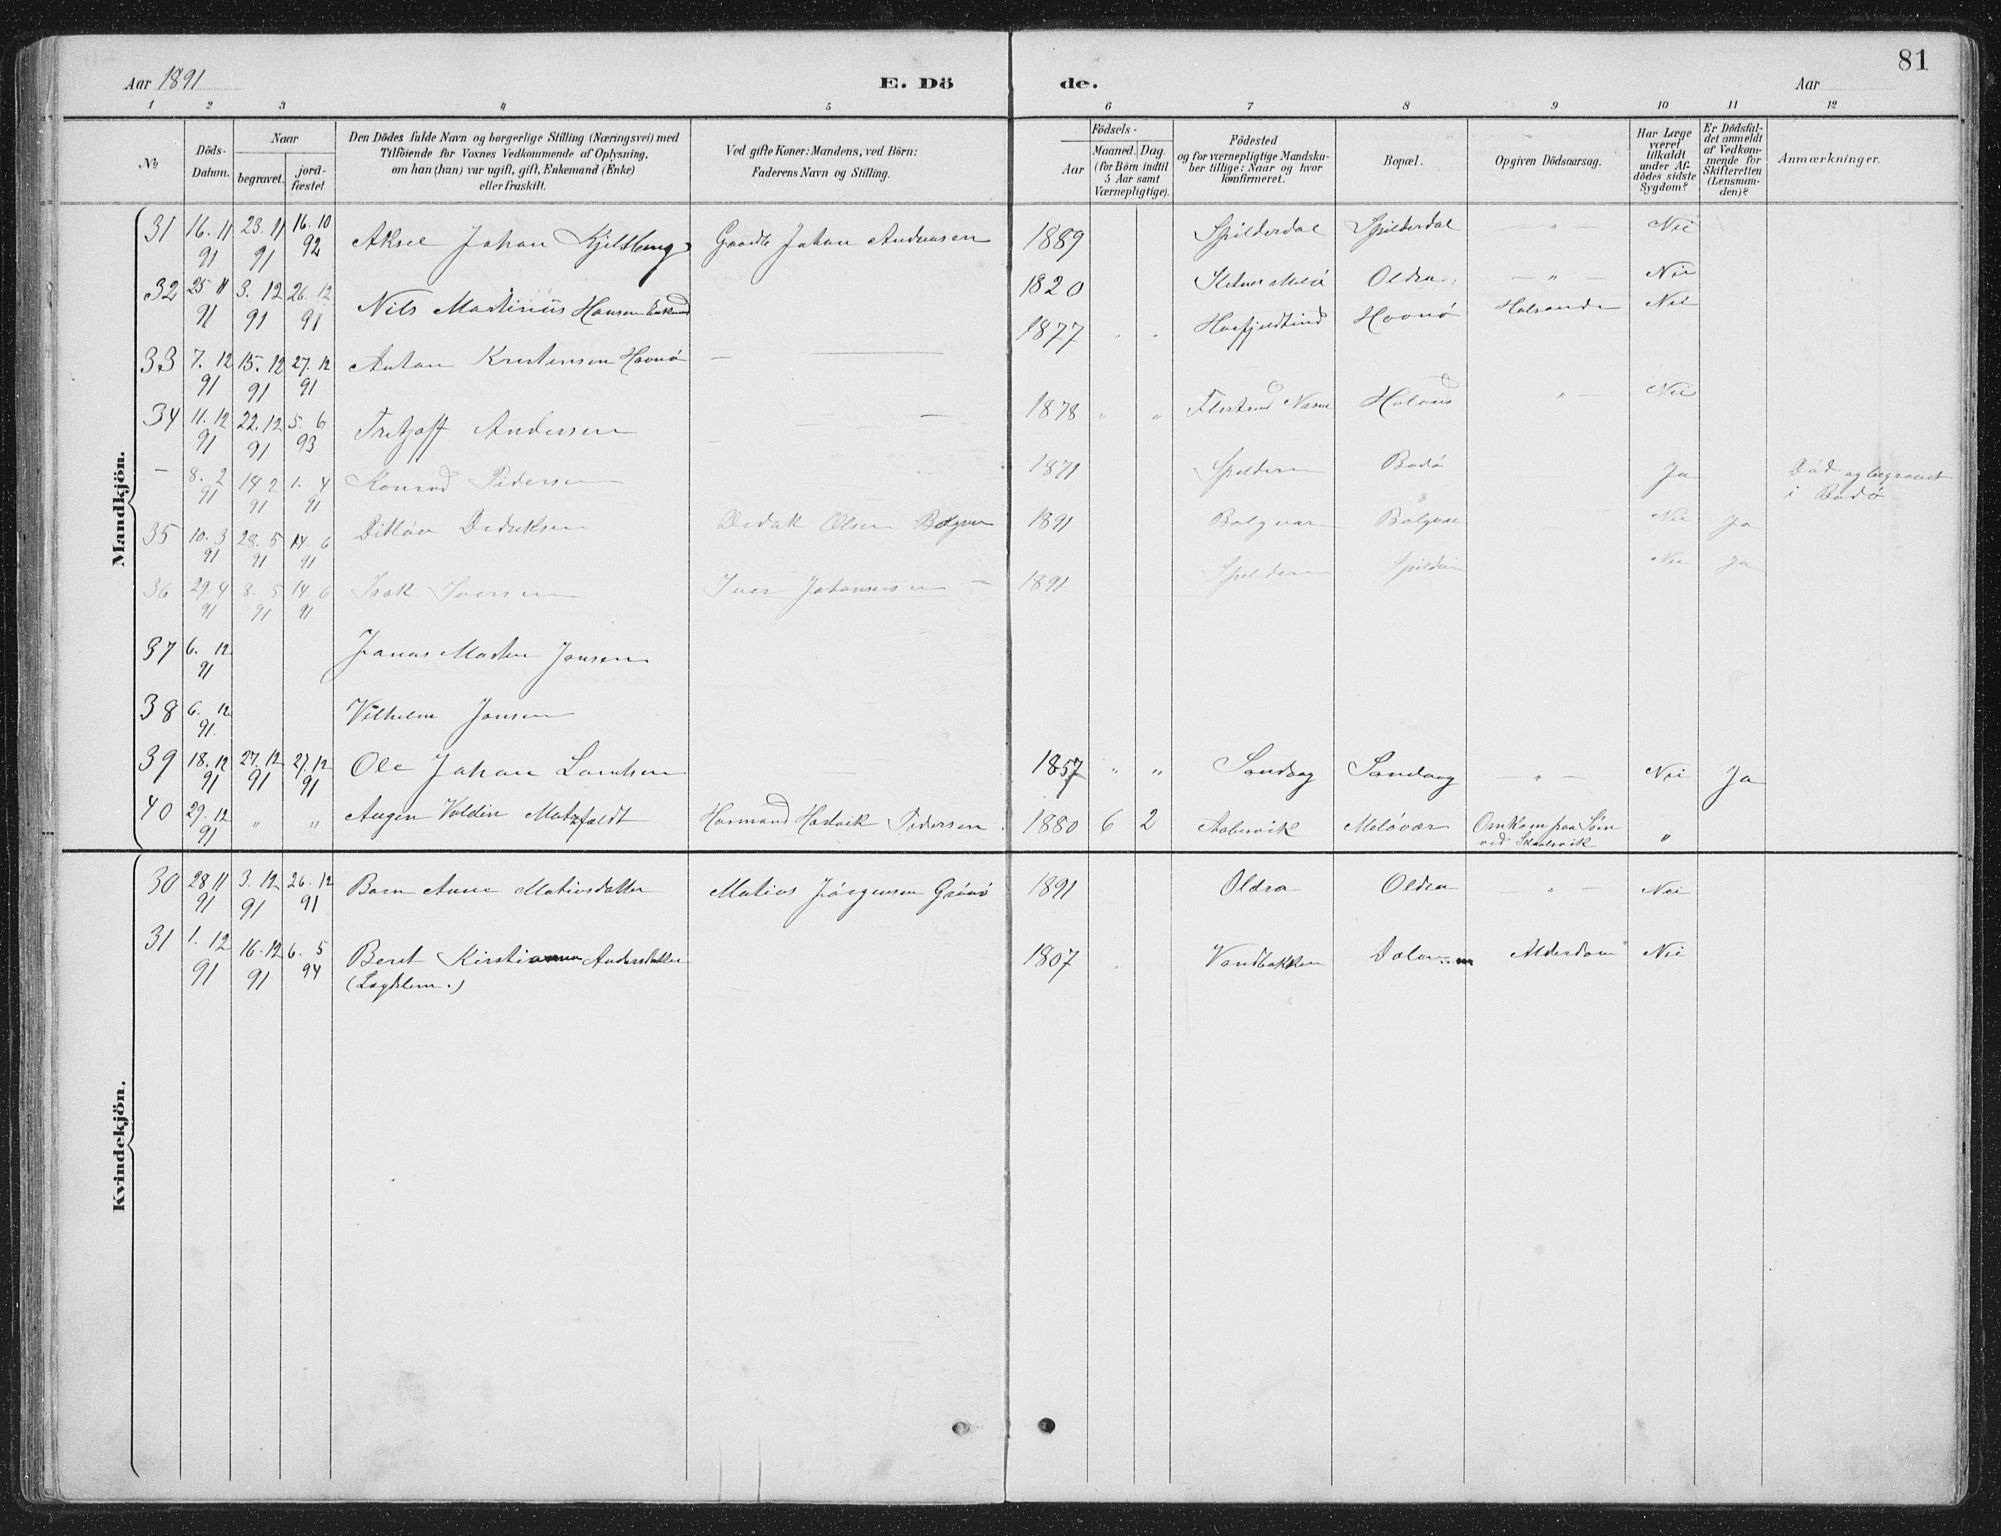 81
Aar 1891 E. Dö de. Aar
1 2 3 4 5 6 7 8 9 10 11 12
No
Döds-Datum.
Naar
begravet.
jord-fæstet.
Den Dödes fulde Navn og borgerlige Stilling (Næringsvei) med
Tilföiende for Voxnes Vedkommende af Oplysning,
om han (hun) var ugift, gift, Enkemand (Enke)
eller fraskilt.
Ved gifte Koner: Mandens, ved Börn:
Faderens Navn og Stilling.
Födsels-
Aar
Maaned. Dag
(for Börn indtil
5 Aar samt
Værnepligtige).
Födested
og for værnepligtige Mandska-
ber tillige: Naar og hvor
konfirmeret.
Bopæl.
Opgiven Dödsaarsag.
Har Læge
været
tilkaldt
under Af-
dödes sidste
Sygdom?
Er Dödsfal-
det anmeldt
af Vedkom-
mende for
Skifteretten
(Lensman-
den)?
Anmærkninger.
Mandkjön.
31 16.11 91 23.11 91 16.10 92 Aksel Johan Kjelsberg Johan Andersen 1889 Spilderdal Spilderdal — " — Nei
32 25 11 91 3.12 91 26.12 91 Nils Martinus Hansen Enkemd 1820 Oldra — " — Nei
33 7.12 91 15.12 91 27.12 91 Anton Kristensen Havnø — 1877 " " Havnø Nei
34 11.12 91 22.12 91 5.6 93 Andersen — 1878 " " " — Nei
— 8.2 91 14 2 91 1.4 91 Konrad Pedersen 1871 Spildern Bodø Ja Död og begravet
i Bodø
35 10.3 91 28.5 91 14.6 91 Ditløv Didriksen Olsen Bolgvær 1891 Bolgvær Bolgvær Nei Ja
36 29.4 91 8.5 91 14.6 91 Isak Iversen Iver Johannesen — 1891 Spildern Spildern Nei Ja
37 6.12 91 Jonas Martin Jonsen
38 6.12 91. Vilhelm Jonsen
39 18.12 91 27.12 91 27.12 91 Ole Johan — 1857 " " Sandvag Sandvag — " — Nei Ja
40 29.12 91 " " Augen Valdin Hartvik Pedersen 1880 6 2 Meløvær Omkom paa Søen
ved "
Kvindekjön.
30 28 11 91 3.12 91 26.12 91 Barn Anne Matiasdatter Matias Jørgensen Grønø 1891 Oldra Oldra — " — Nei
31 1.12 91 16.12 91 6.5 94 Beret Kirstianna Andersdatter 1807 Vandbakken Alderdom Nei
(Lægdslem.)